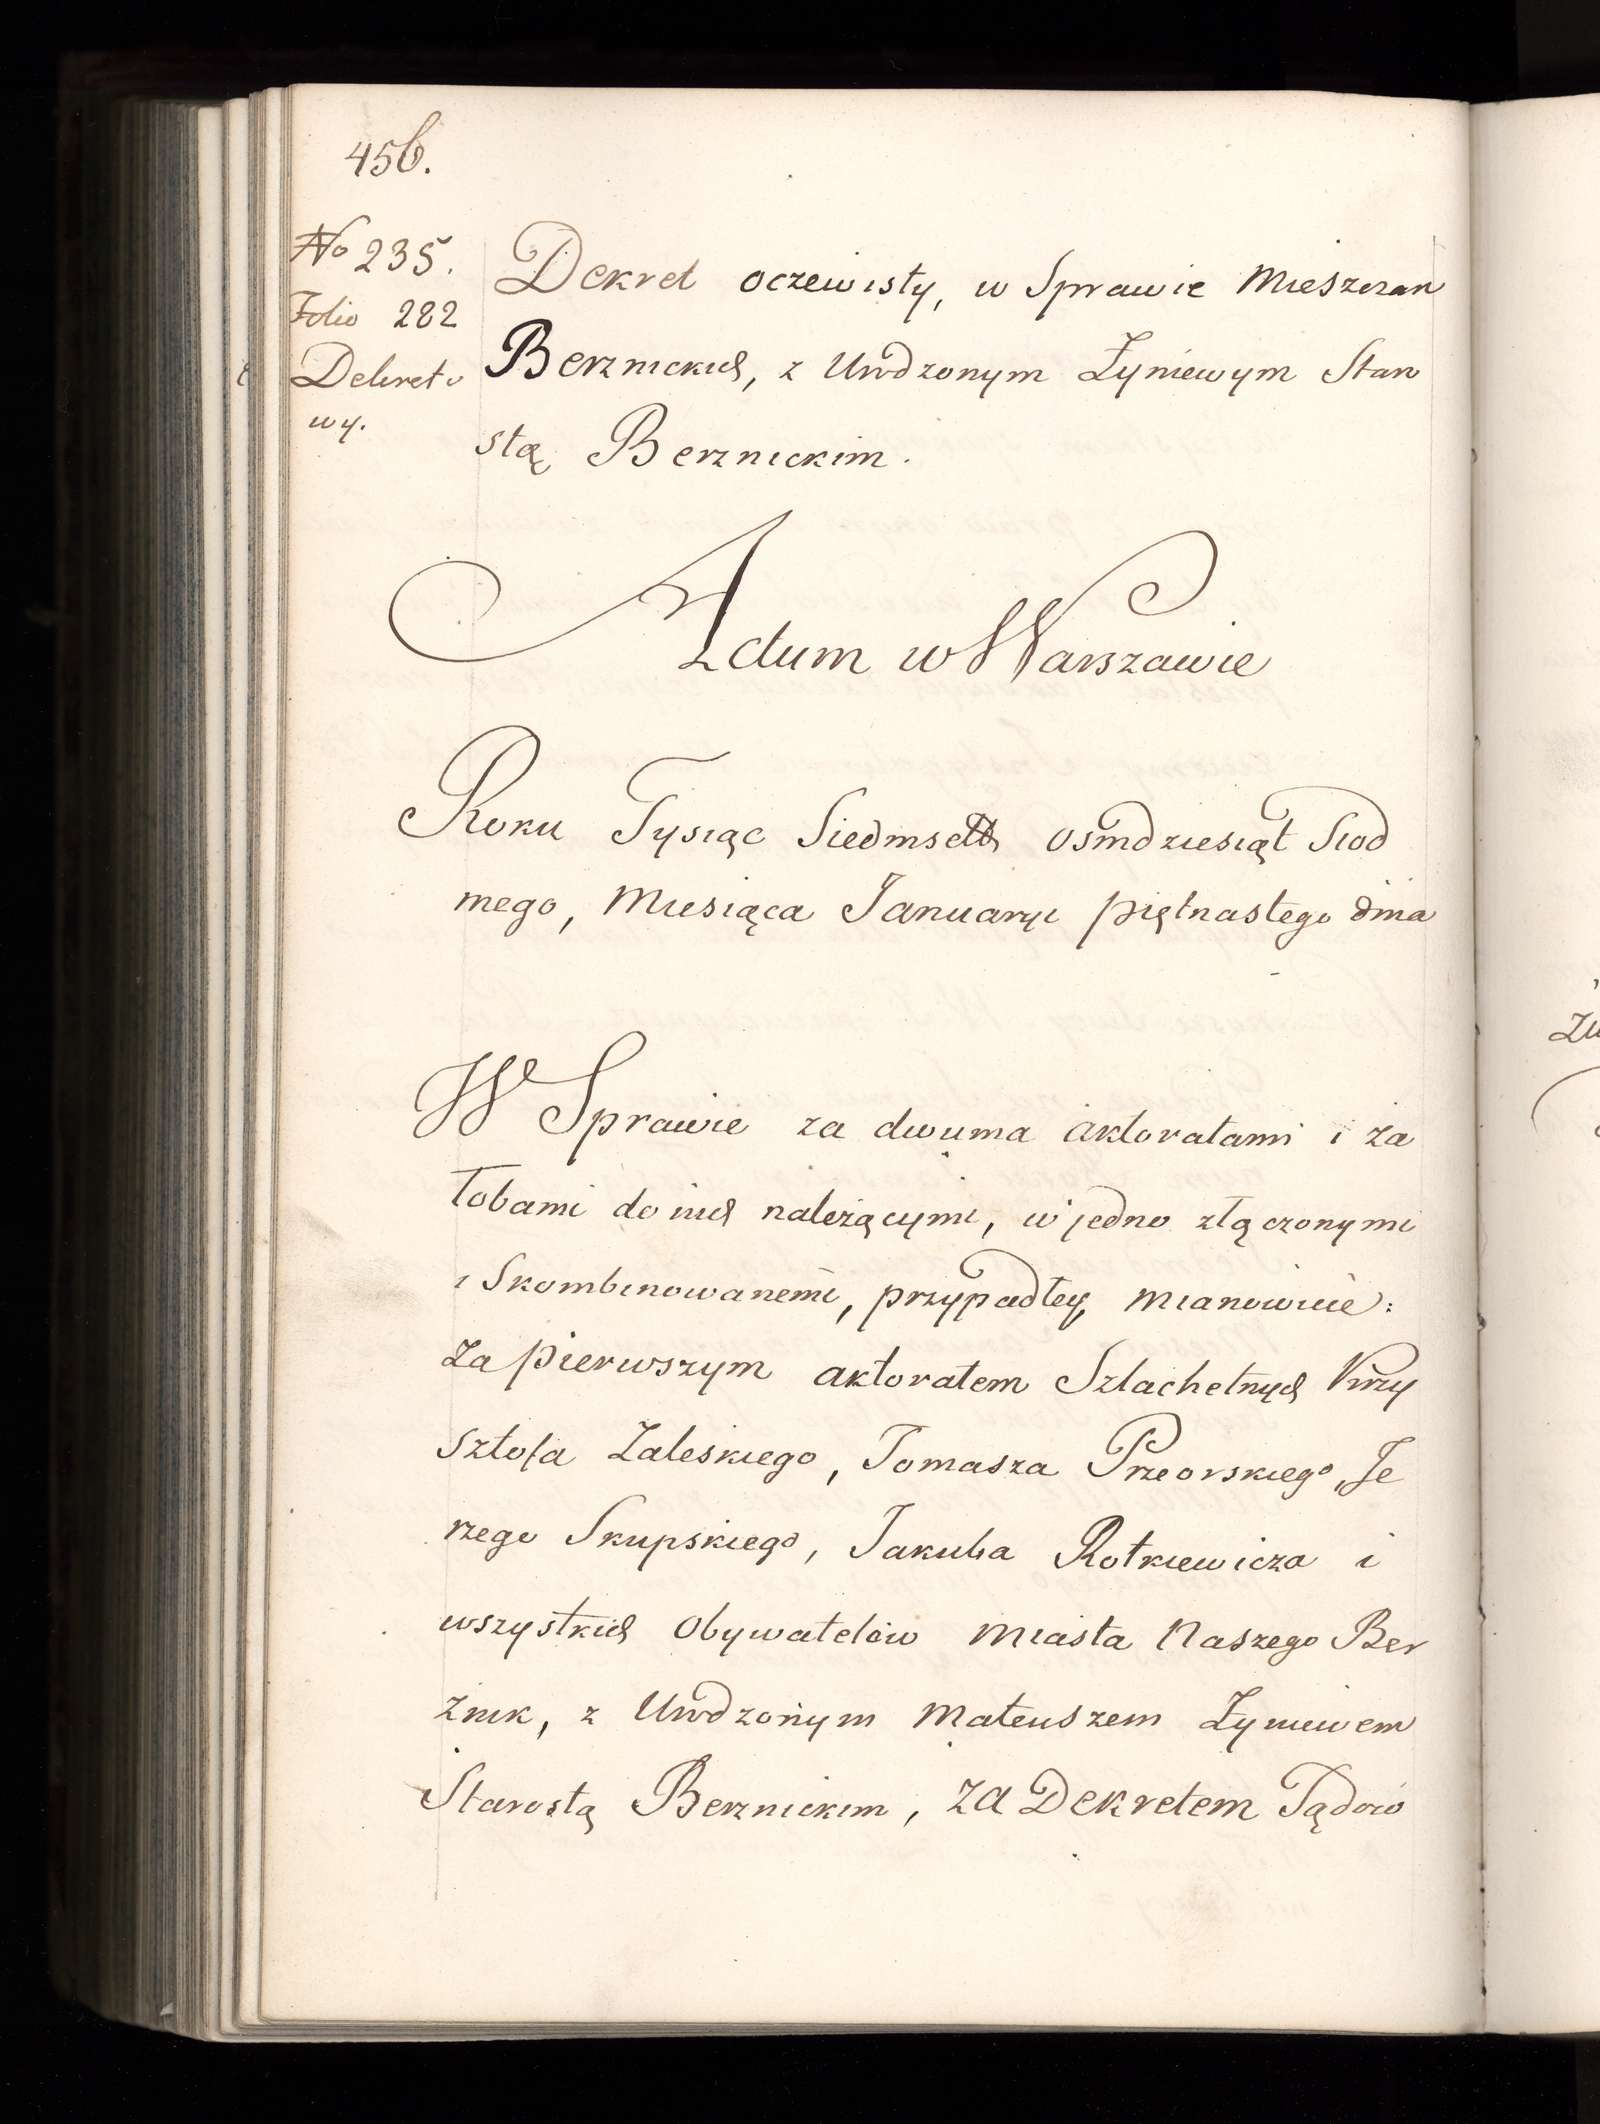 456.
No 235.
Folio 282
Dekreto
wy.
Dekret oczewisty, w Sprawie Mieszczan
Berznickich, z Urodzonym Żyniewym Staro
stą Berznickim.
Actum w Warszawie
Roku Tysiąc Siedmset osmdziesiąt Siod
mego, Miesiąca Januaryi piętnastego dnia
W Sprawie za dwuma aktoratami i ża
łobami do nich należącymi, w jedno złączonymi
i Skombinowanemi, przypadłey, mianowicie:
Za pierwszym aktoratem Szlachetnych Krzy
sztofa Zaleskiego, Tomasza Przeorskiego, Je
rzego Skupskiego, Jakuba Rotkiewicza i
wszystkich Obywatelów Miasta Naszego Ber
żnik, z Urodzonym Mateuszem Żyniewem
Starostą Berznickim, za Dekretem Sądów